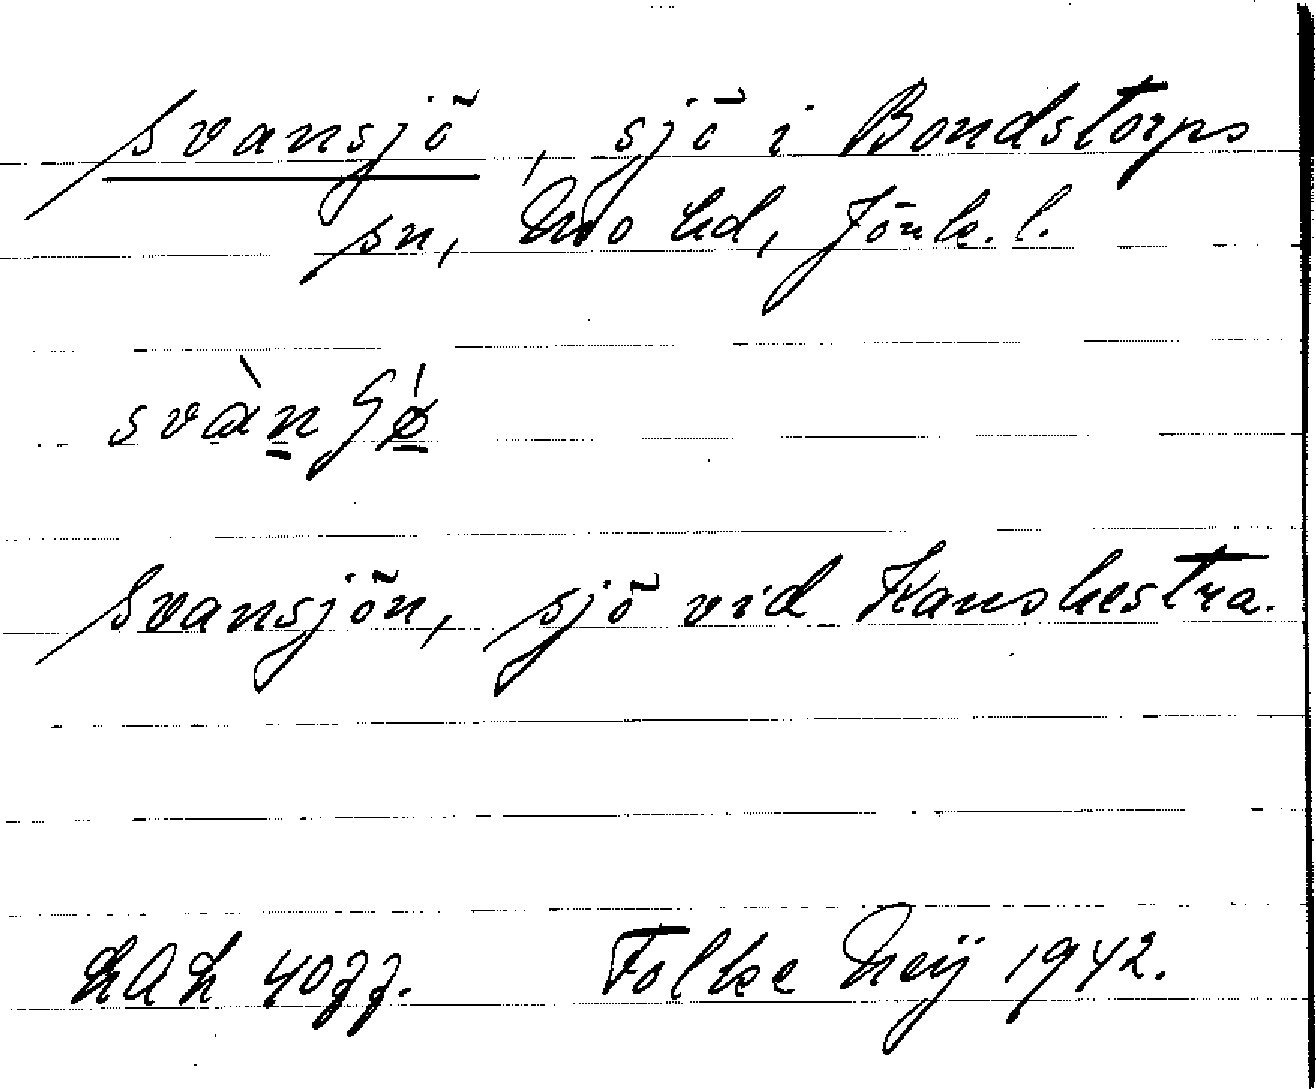 Svansjö, sjö i Bondstorps
sn, Mo hd, Jönk. l.
svàn
Svansjön, sjö vid Kanshestra.
LAL 4077. Folke Neij 1942.